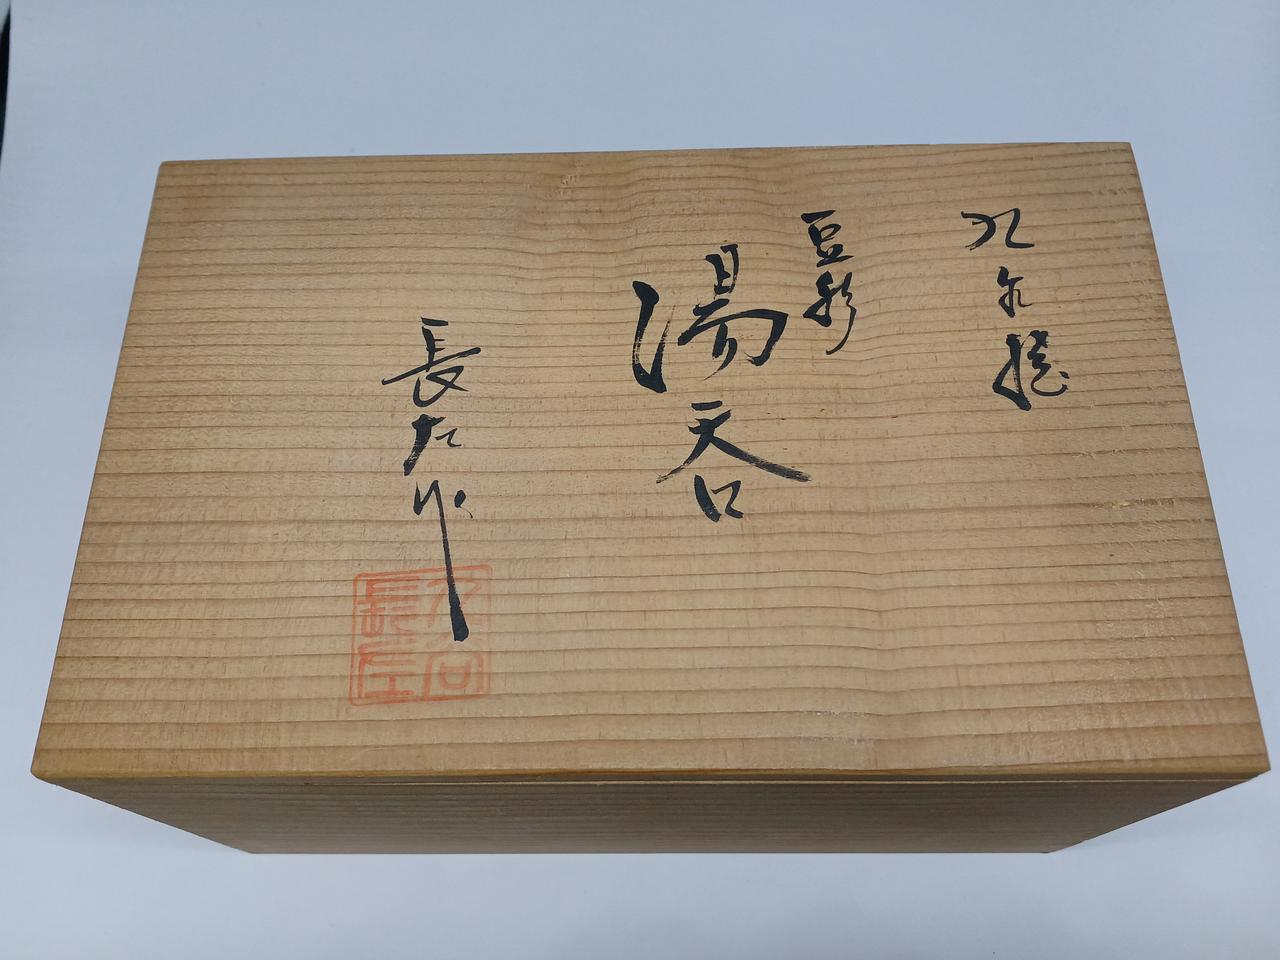 九谷焼
豆彩
湯呑
長左作
九谷
長左